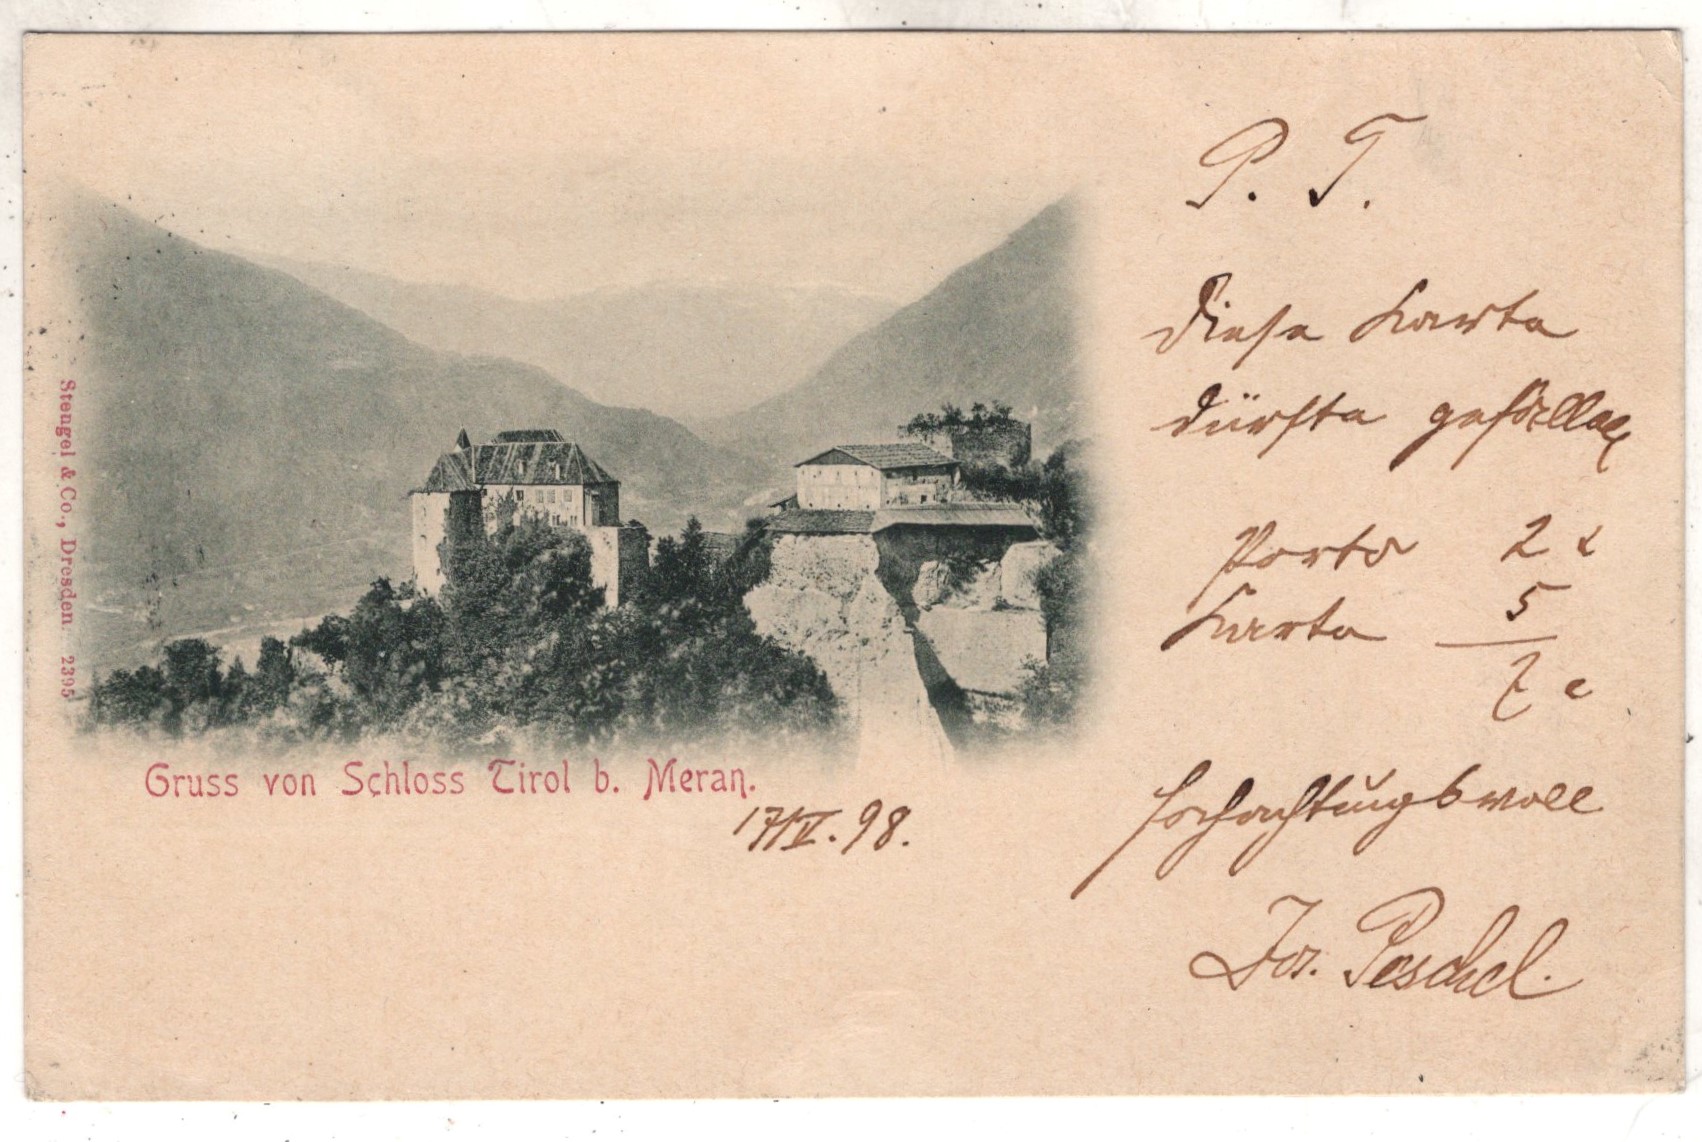 Stengel & Co., Dresden. 2395
Gruss von Schloss Tirol b. Meran.
17/IV. 98.
P. T.
Diese Karte
dürfte gefallen
Porto 2 x
Karte 5
7 x
Hochachtungsvoll
Jos. Peschel.